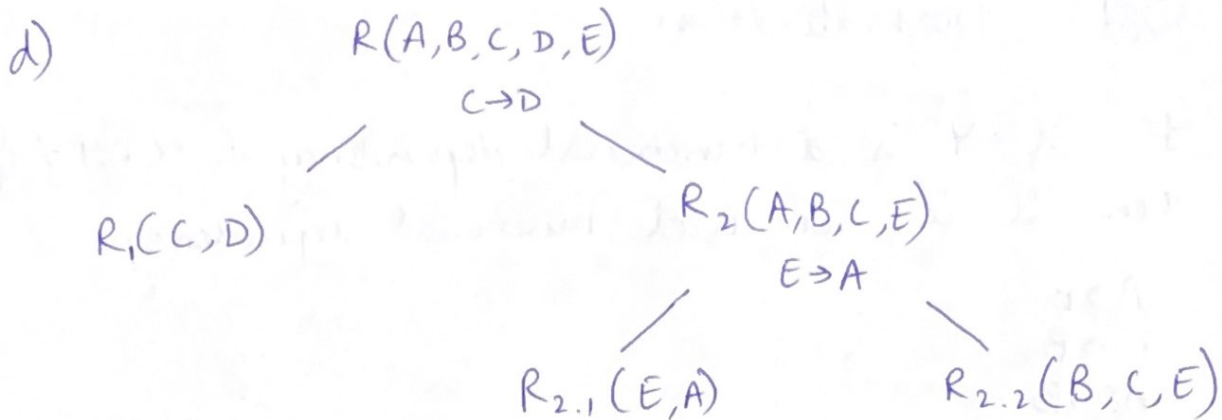 d) R(A,B,C,D,E)
C→D
R₁(C,D)
R₂(A,B,C,E)
E→A
R₂.₁(E,A)
R₂.₂(B,C,E)